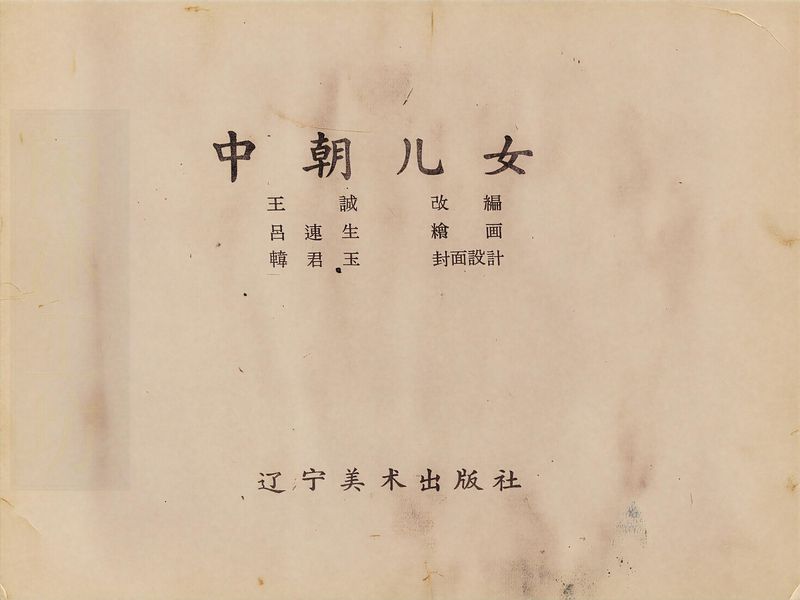 中朝儿女
王誠 改編
呂連生 繪画
韓君玉 封面設計
辽宁美术出版社